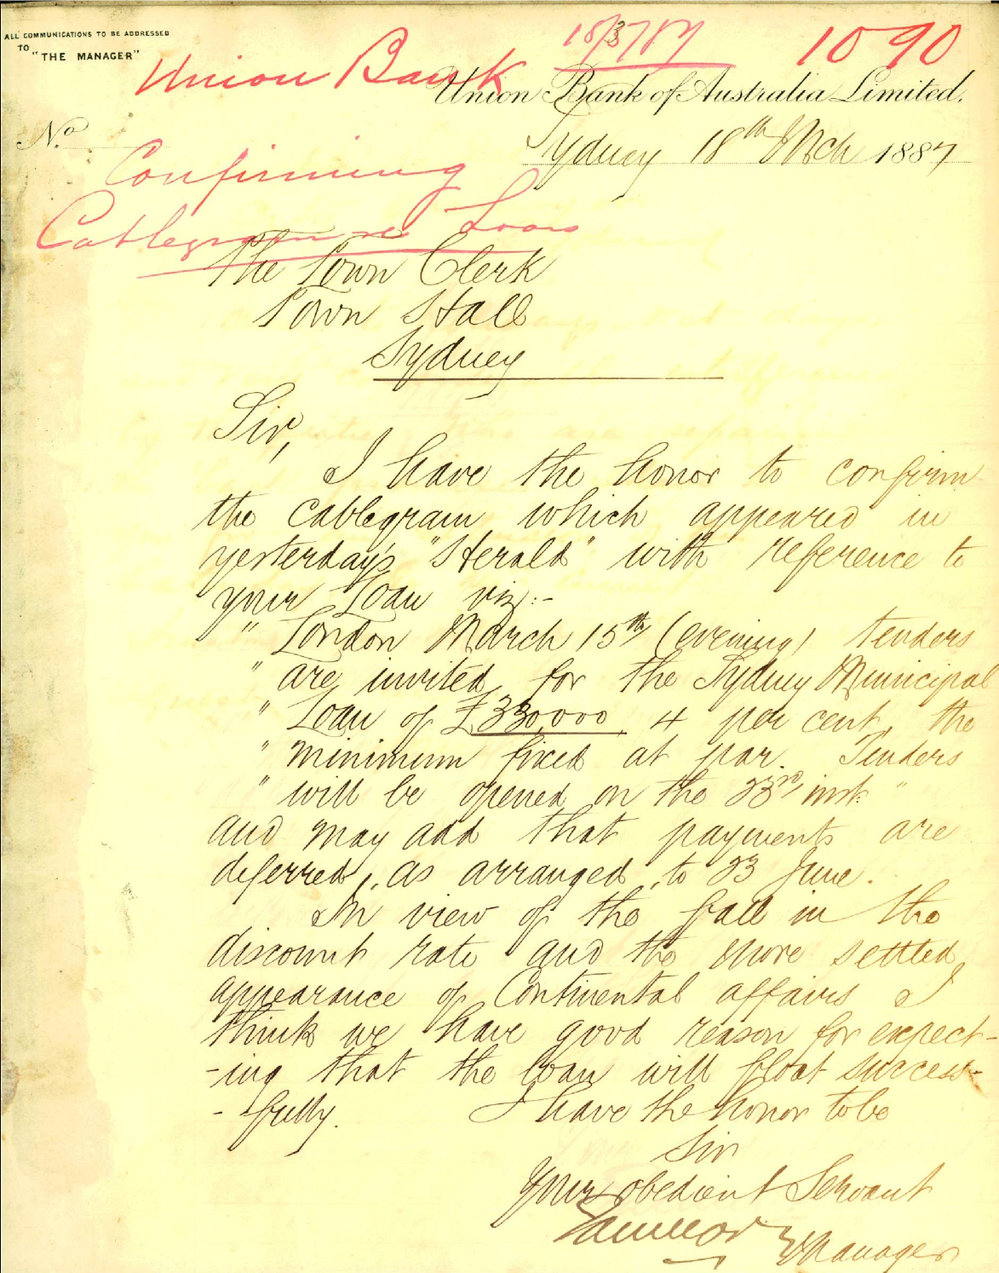 ALL COMMUNICATIONS TO BE ADDRESSED
TO "THE MANAGER"
18/3/87
1090
Union Bank
Union Bank of Australia Limited.
No.
Sydney 18th Mch 1887
Confirming
Cablegram re Loan
The Town Clerk
Town Hall
Sydney
Sir,
I have the honor to confirm
the cablegram which appeared in
yesterday's "Herald" with reference to
your Loan viz:-
" London March 15th (evening) tenders
" are invited for the Sydney Municipal
" Loan of £330,000 4 per cent, the
" minimum fixed at par. Tenders
" will be opened on the 23rd inst."
and may add that payments are
deferred, as arranged, to 23 June.
In view of the fall in the
discount rate and the more settled
appearance of Continental affairs I
think we have good reason for expect-
-ing that the loan will float success-
-fully. I have the honor to be
Sir
Your obedient Servant
Manager